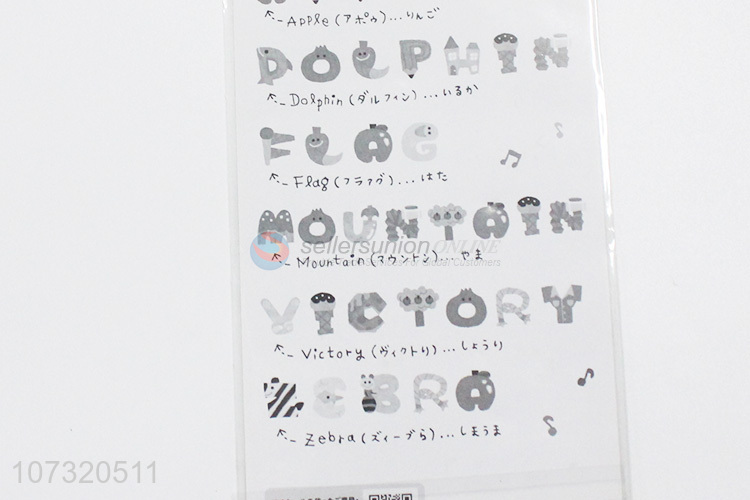 Apple (アポゥ)...りんご
DOLPHIN
Dolphin (ダルフィン)...いるか
FLAG
Flag (フラァグ)...はた
MOUNTAIN
sellersunion ONLINE
Mountain (マウントン)...やま
VICTORY
Victory (ヴィクトリ)...しょうり
ZEBRA
Zebra (ズィーブら)...しまうま
107320511